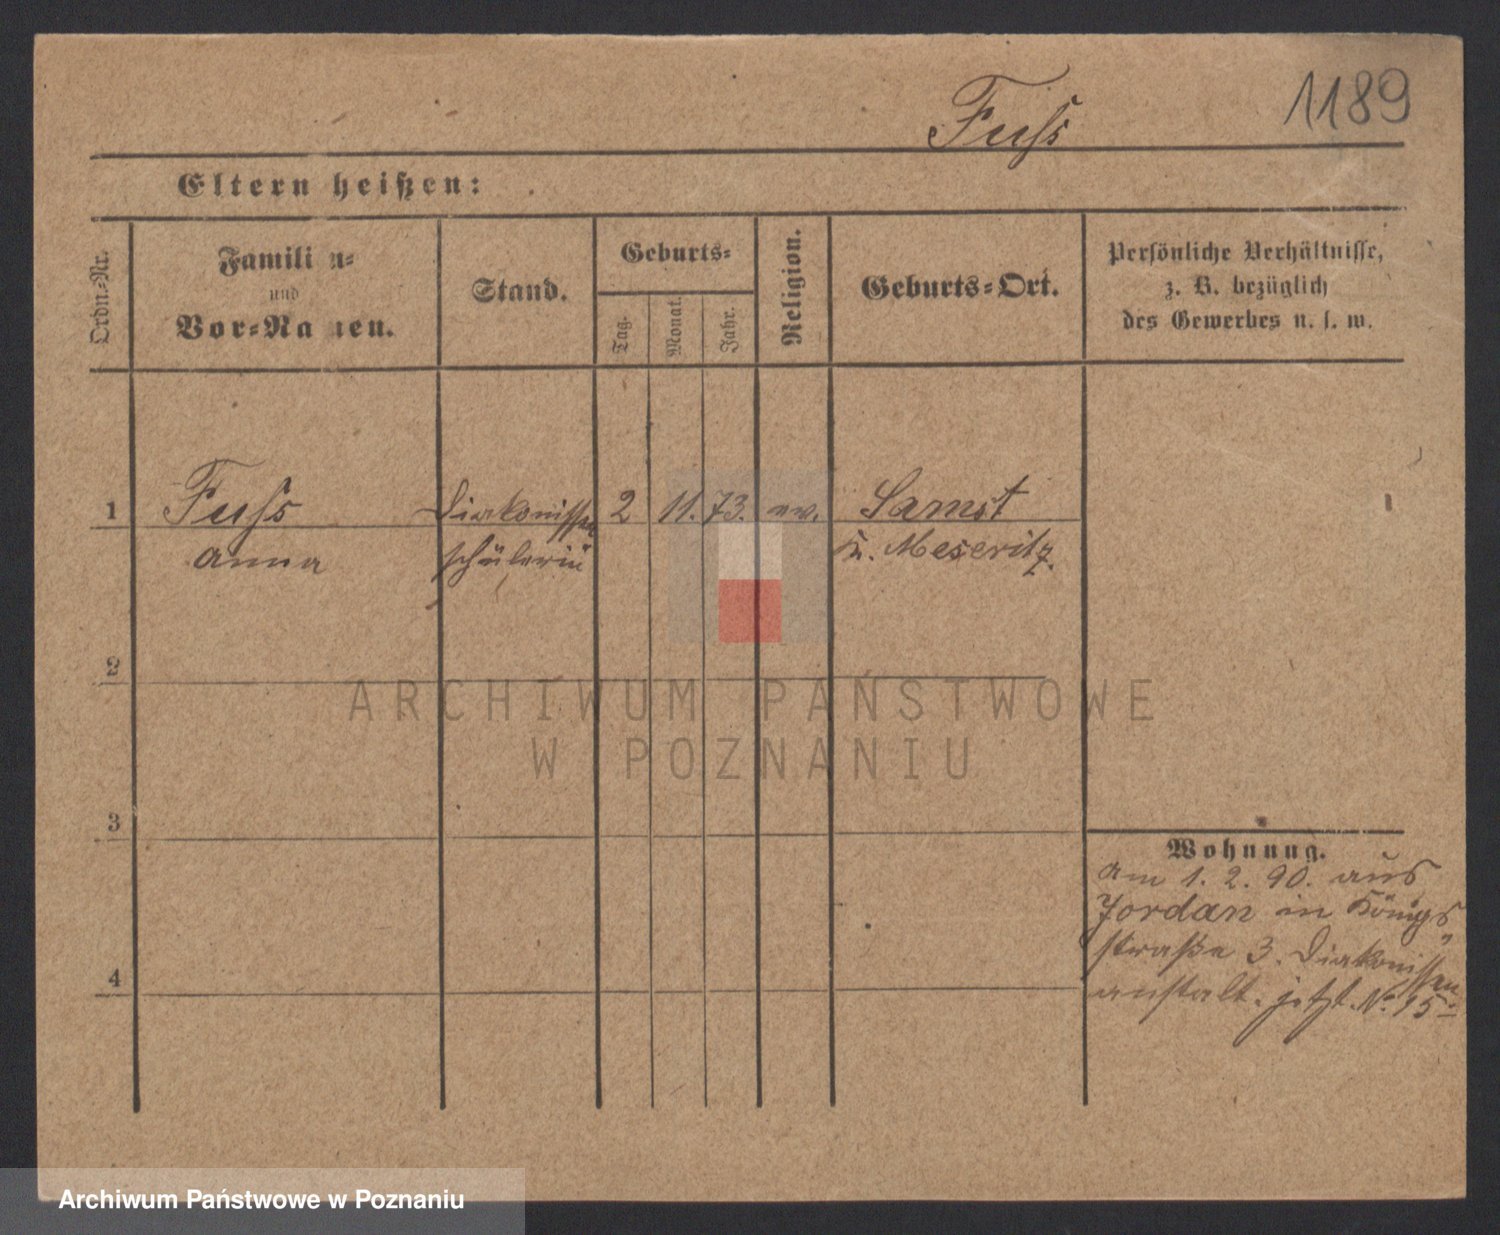 Fuss
1189
Eltern heißen:
Ordn.-Nr.
Familien-
und
Vor-Namen.
Stand.
Geburts-
Tag.
Monat.
Jahr.
Religion.
Geburts-Ort.
Persönliche Verhältnisse,
z. B. bezüglich
des Gewerbes u. s. w.
1
Fuss
Diakonissen
2
11.
73.
ev.
Samst
Anna
schülerin
K. Meseritz.
2
3
4
Wohnung.
am 1. 2. 90. aus
Jordan in Königs
straße 3. Diakonissen
anstalt. jetzt No. 15
ARCHIWUM PAŃSTWOWE
W POZNANIU
Archiwum Państwowe w Poznaniu